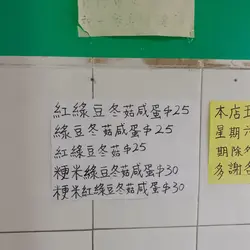 紅綠豆冬菇咸蛋$25
綠豆冬菇咸蛋$25
紅綠豆冬菇$25
粳米綠豆冬菇咸蛋$30
粳米紅綠豆冬菇咸蛋$30
本店五
星期六
期除外
多謝各